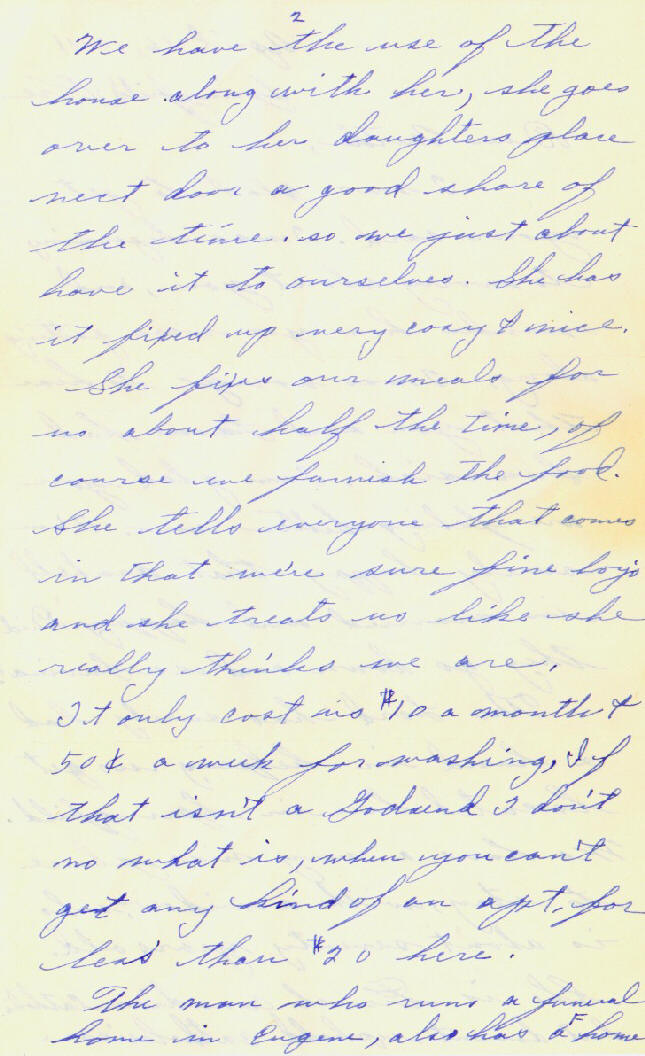 2
We have the use of the
house along with her, she goes
over to her daughters place
next door a good share of
the time. so we just about
have it to ourselves. She has
it fixed up very cosy & nice.
She fixes our meals for
us about half the time, of
course we furnish the food.
She tells everyone that comes
in that we're sure fine boys
and she treats us like she
really thinks we are.
It only cost us $10 a month &
50¢ a week for washing, If
that isn't a Godsend I don't
no what is, when you can't
get any kind of an apt. for
less than $20 here.
The man who runs a funeral
home in Eugene, also has a F home